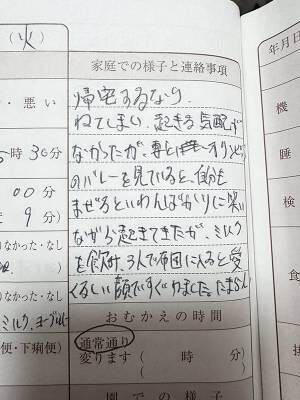 (火)
家庭での様子と連絡事項
年月日
・悪い
帰宅するなり
機
ねてしまい、起きる気配が
時30分
なかったが、オリンピック
睡
のバレーを見ていると、自分も
00分
まぜろといわんばかりに笑い
9分)
検
ながら起きてきたが、ミルク
なかった・なし
を飲み、3人で布団に入ると愛
食
くるしい顔ですぐねました。たまらん
ミルク、ヨーグルト
おむかえの時間
便・下痢便)
通常通り
変ります(時 分)
なかった・なし
園での様子